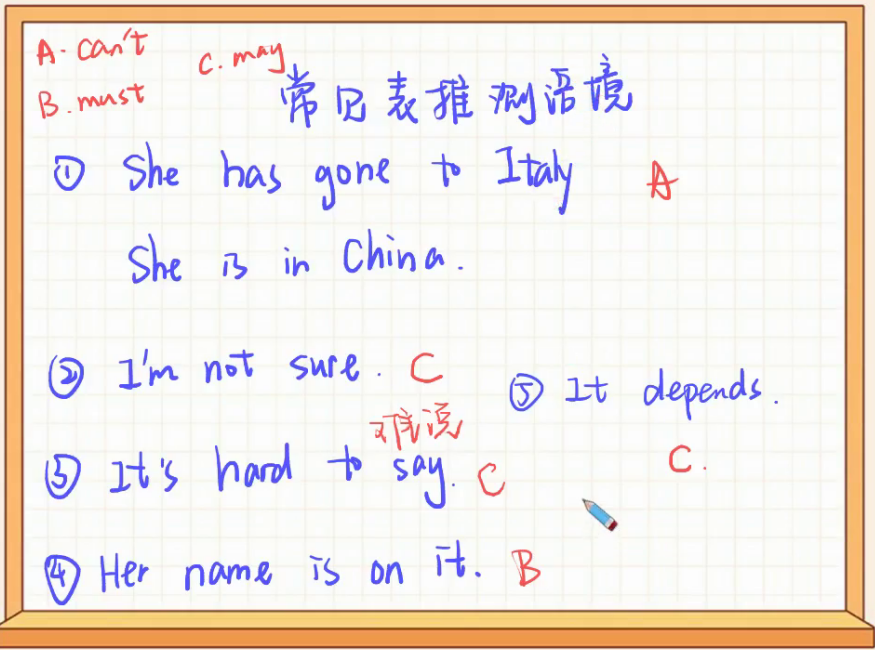 A. can't
C. may
B. must
常见表推测语境
① She has gone to Italy A
She is in China.
② I'm not sure. C
⑤ It depends.
C.
难说
③ It's hard to say. C
④ Her name is on it. B